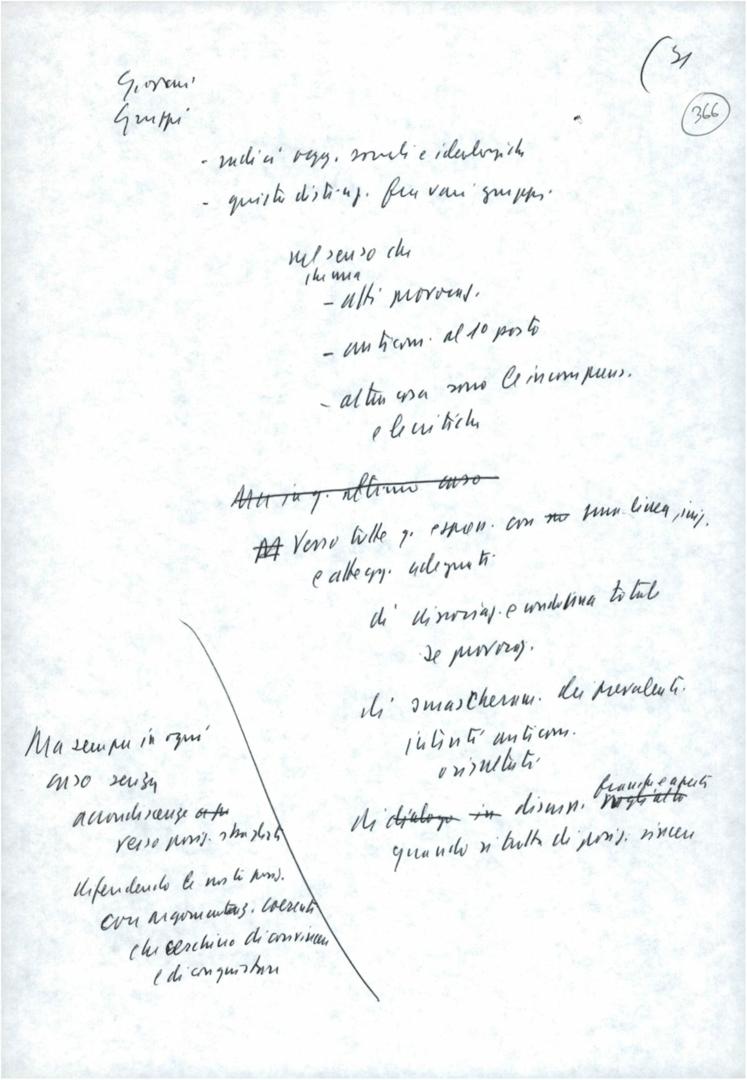 (31
366
Giovani
Gruppi
- radici ogg. sociali e ideologiche
- giusto disting. fra vari gruppi.
nel senso che
- atti provocaz.
- anticom. al 1o posto
- altra cosa sono le incomprens.
e le critiche
Ma in q. ultimo caso
Verso tutte q. espress. con una linea,
e attegg. adeguati
di dissociaz. e condanna totale
se provocaz.
di smascheram. dei prevalenti
intenti anticom.
o risultati
di dialogo in discuss. franche e aperte
quando si tratta di posiz. sincere
Ma sempre in ogni
caso senza
accondiscenze
verso posiz. sbagliate
difendendo le nostre posiz.
con argomentaz. coerenti
che cerchino di convincere
e di conquistare